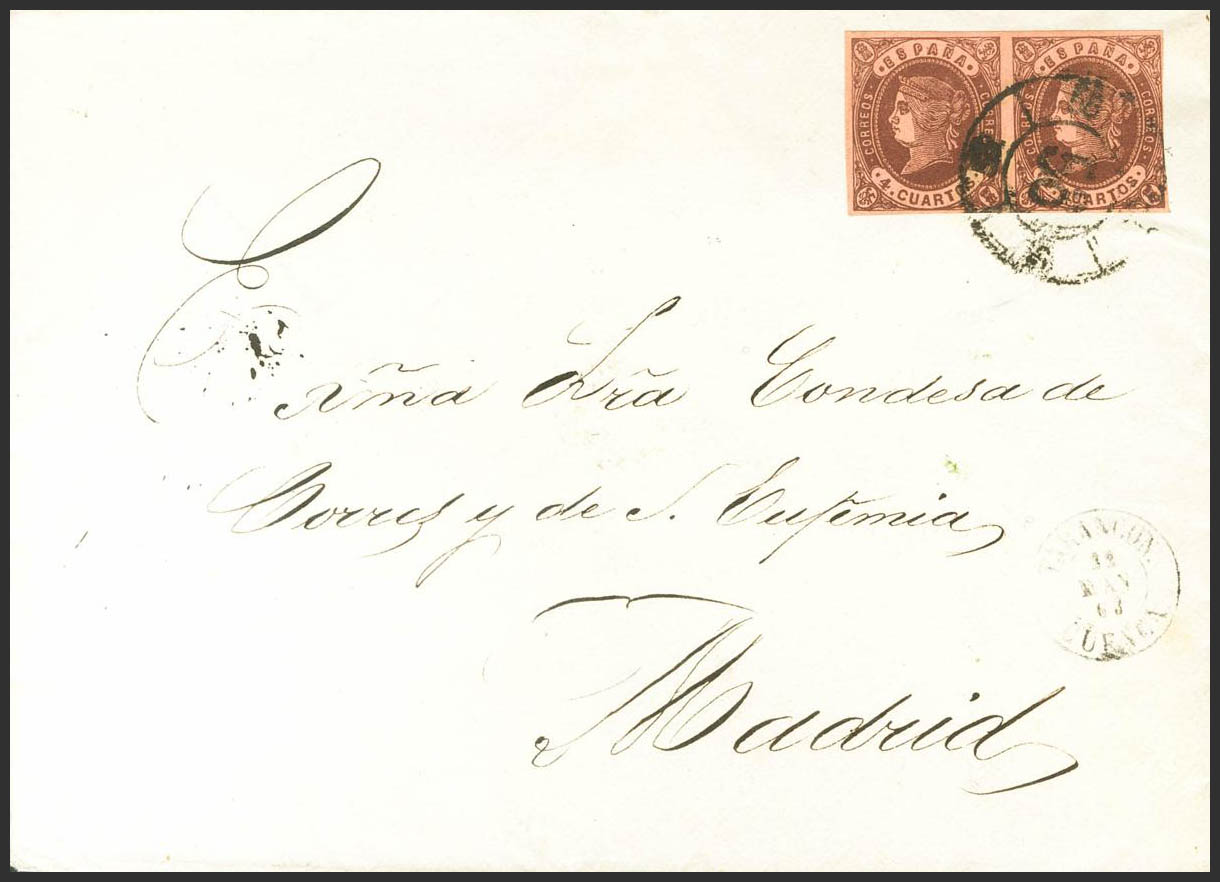 ESPAÑA ESPAÑA
CORREOS CORREOS CORREOS
4. CUARTOS CUARTOS.
Exma Sra Condesa de
Torres y de S. Eufemia
Madrid
TARANCON.
12
MAY
63
CUENCA